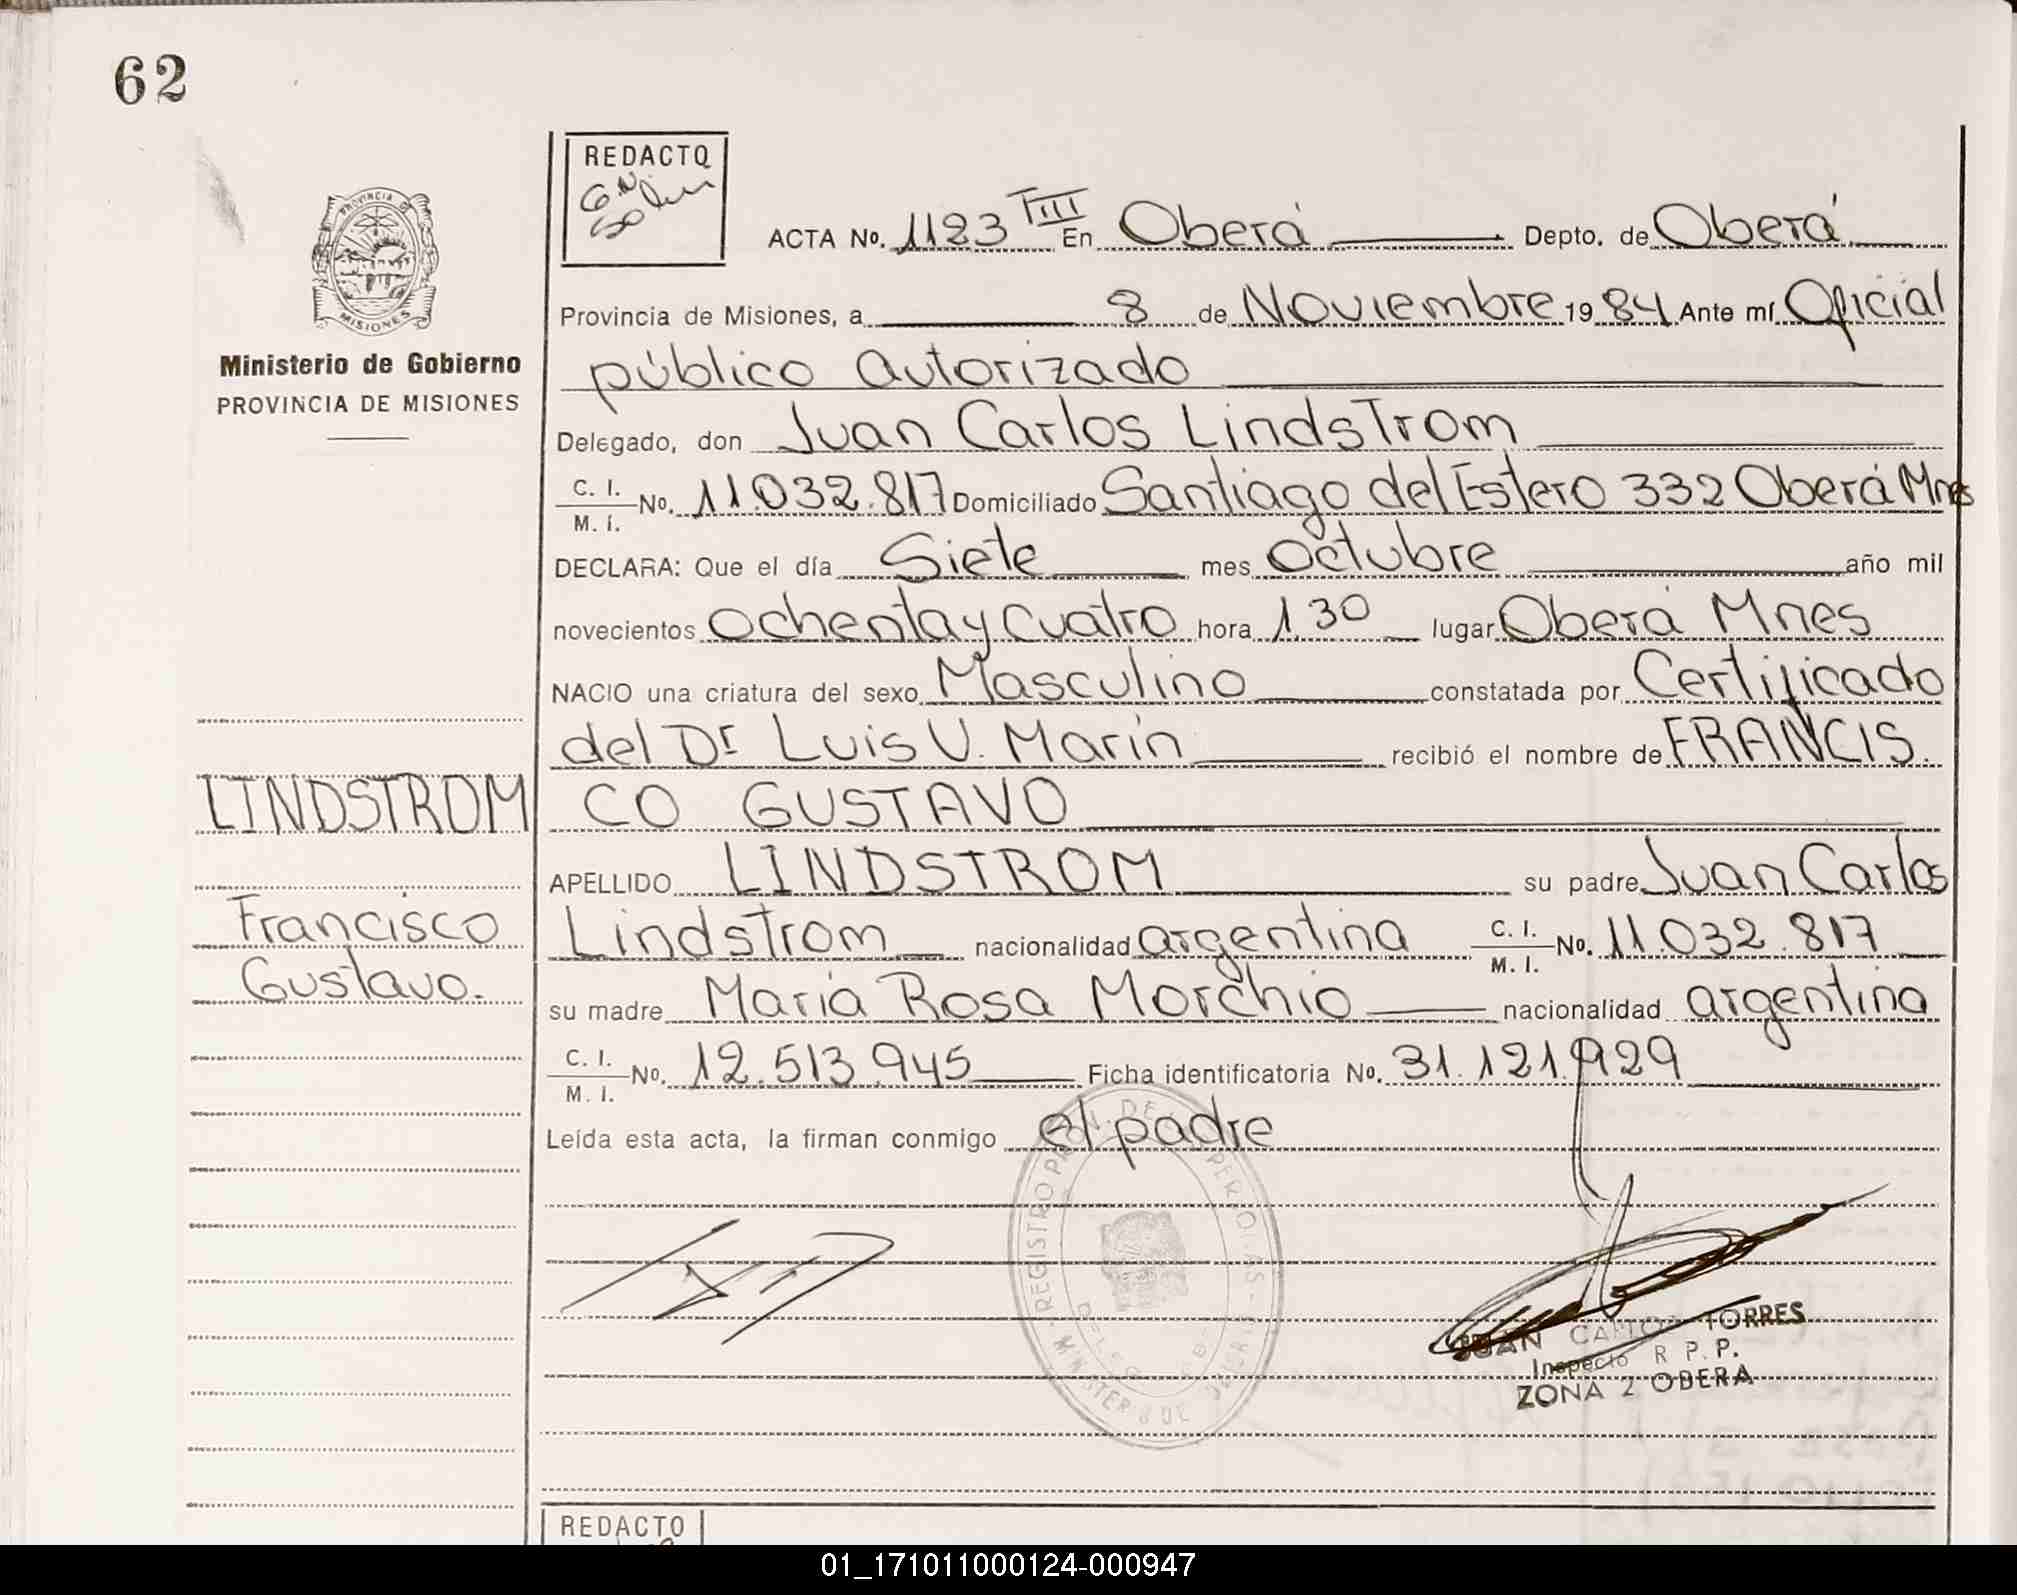 62
REDACTO
ACTA No. 1123 TIII En Oberá Depto. de Oberá
PROVINCIA DE
MISIONES
Provincia de Misiones, a 8 de Noviembre 1984 Ante mí Oficial
Ministerio de Gobierno
PROVINCIA DE MISIONES
público autorizado
Delegado, don Juan Carlos Lindstrom
C. I. / M. I. No. 11.032.817 Domiciliado Santiago del Estero 332 Oberá Mnes
DECLARA: Que el día Siete mes Octubre año mil
novecientos Ochenta y Cuatro hora 1,30 lugar Oberá Mnes
NACIO una criatura del sexo Masculino constatada por Certificado
del Dr Luis V. Marín recibió el nombre de FRANCIS.
LINDSTROM
CO GUSTAVO
APELLIDO LINDSTROM su padre Juan Carlos
Francisco
Gustavo.
Lindstrom nacionalidad argentina C. I. / M. I. No. 11.032.817
su madre María Rosa Morchio nacionalidad argentina
C. I. / M. I. No. 12.513.945 Ficha identificatoria No. 31.121.929
Leída esta acta, la firman conmigo el padre
JUAN CARLOS TORRES
R P. P.
ZONA 2 OBERA
REDACTO
01_171011000124-000947